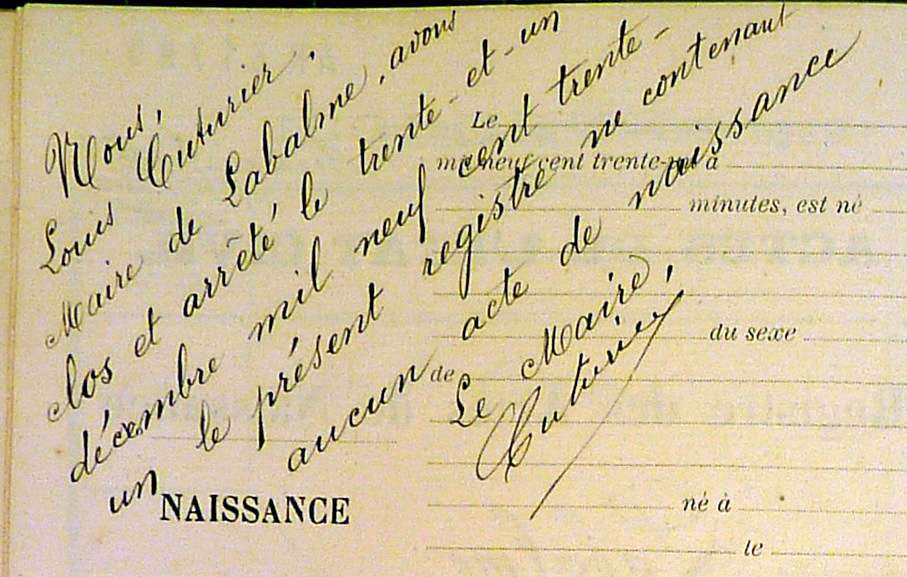 Nous,
Louis Cuturier,
Maire de Labalme, avons
clos et arrêté le trente-et-un
décembre mil neuf cent trente-
un le présent registre ne contenant
aucun acte de naissance
Le Maire,
Cuturier
Le
mil neuf cent trente-un à
minutes, est né
du sexe
de
NAISSANCE
né à
le